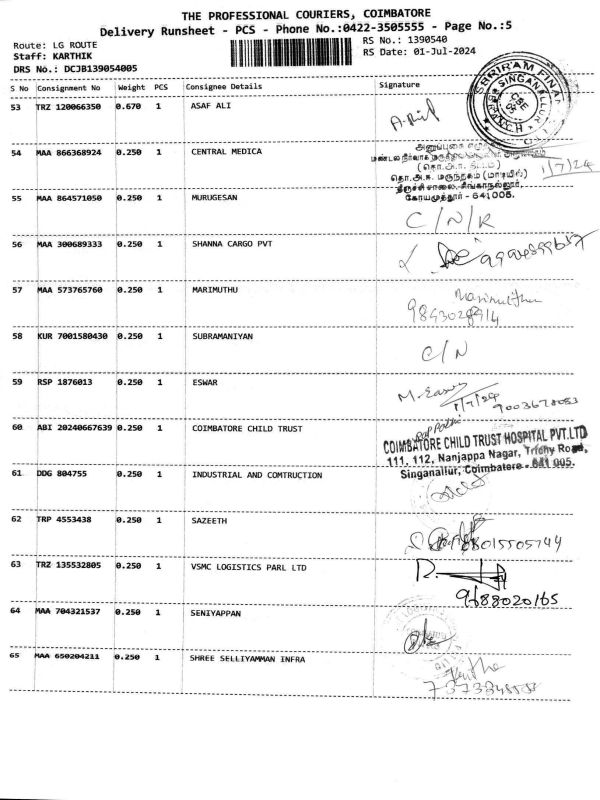 THE PROFESSIONAL COURIERS, COIMBATORE
Delivery Runsheet - PCS - Phone No.:0422-3505555 - Page No.:5
Route: LG ROUTE
RS No.: 1390540
Staff: KARTHIK
RS Date: 01-Jul-2024
DRS No.: DCJB139054005
S No Consignment No Weight PCS Consignee Details Signature
53 TRZ 120066350 0.670 1 ASAF ALI
SHRIRAM FINANCE
SINGANALLUR
BRANCH
54 MAA 866368924 0.250 1 CENTRAL MEDICA
1/7/24
திருச்சி சாலை, சிங்காநல்லூர்,
கோயமுத்தூர் - 641005.
55 MAA 864571050 0.250 1 MURUGESAN C/N/R
56 MAA 300689333 0.250 1 SHANNA CARGO PVT
57 MAA 573765760 0.250 1 MARIMUTHU Marimuthu
58 KUR 7001580430 0.250 1 SUBRAMANIYAN C/N
59 RSP 1876013 0.250 1 ESWAR
1/7/24
60 ABI 20240667639 0.250 1 COIMBATORE CHILD TRUST
COIMBATORE CHILD TRUST HOSPITAL PVT.LTD
111, 112, Nanjappa Nagar, Trichy Road,
Singanallur, Coimbatore - 641 005.
61 DDG 804755 0.250 1 INDUSTRIAL AND COMTRUCTION
62 TRP 4553438 0.250 1 SAZEETH
8015505744
63 TRZ 135532805 0.250 1 VSMC LOGISTICS PARL LTD
9688020165
64 MAA 704321537 0.250 1 SENIYAPPAN
65 MAA 650204211 0.250 1 SHREE SELLIYAMMAN INFRA